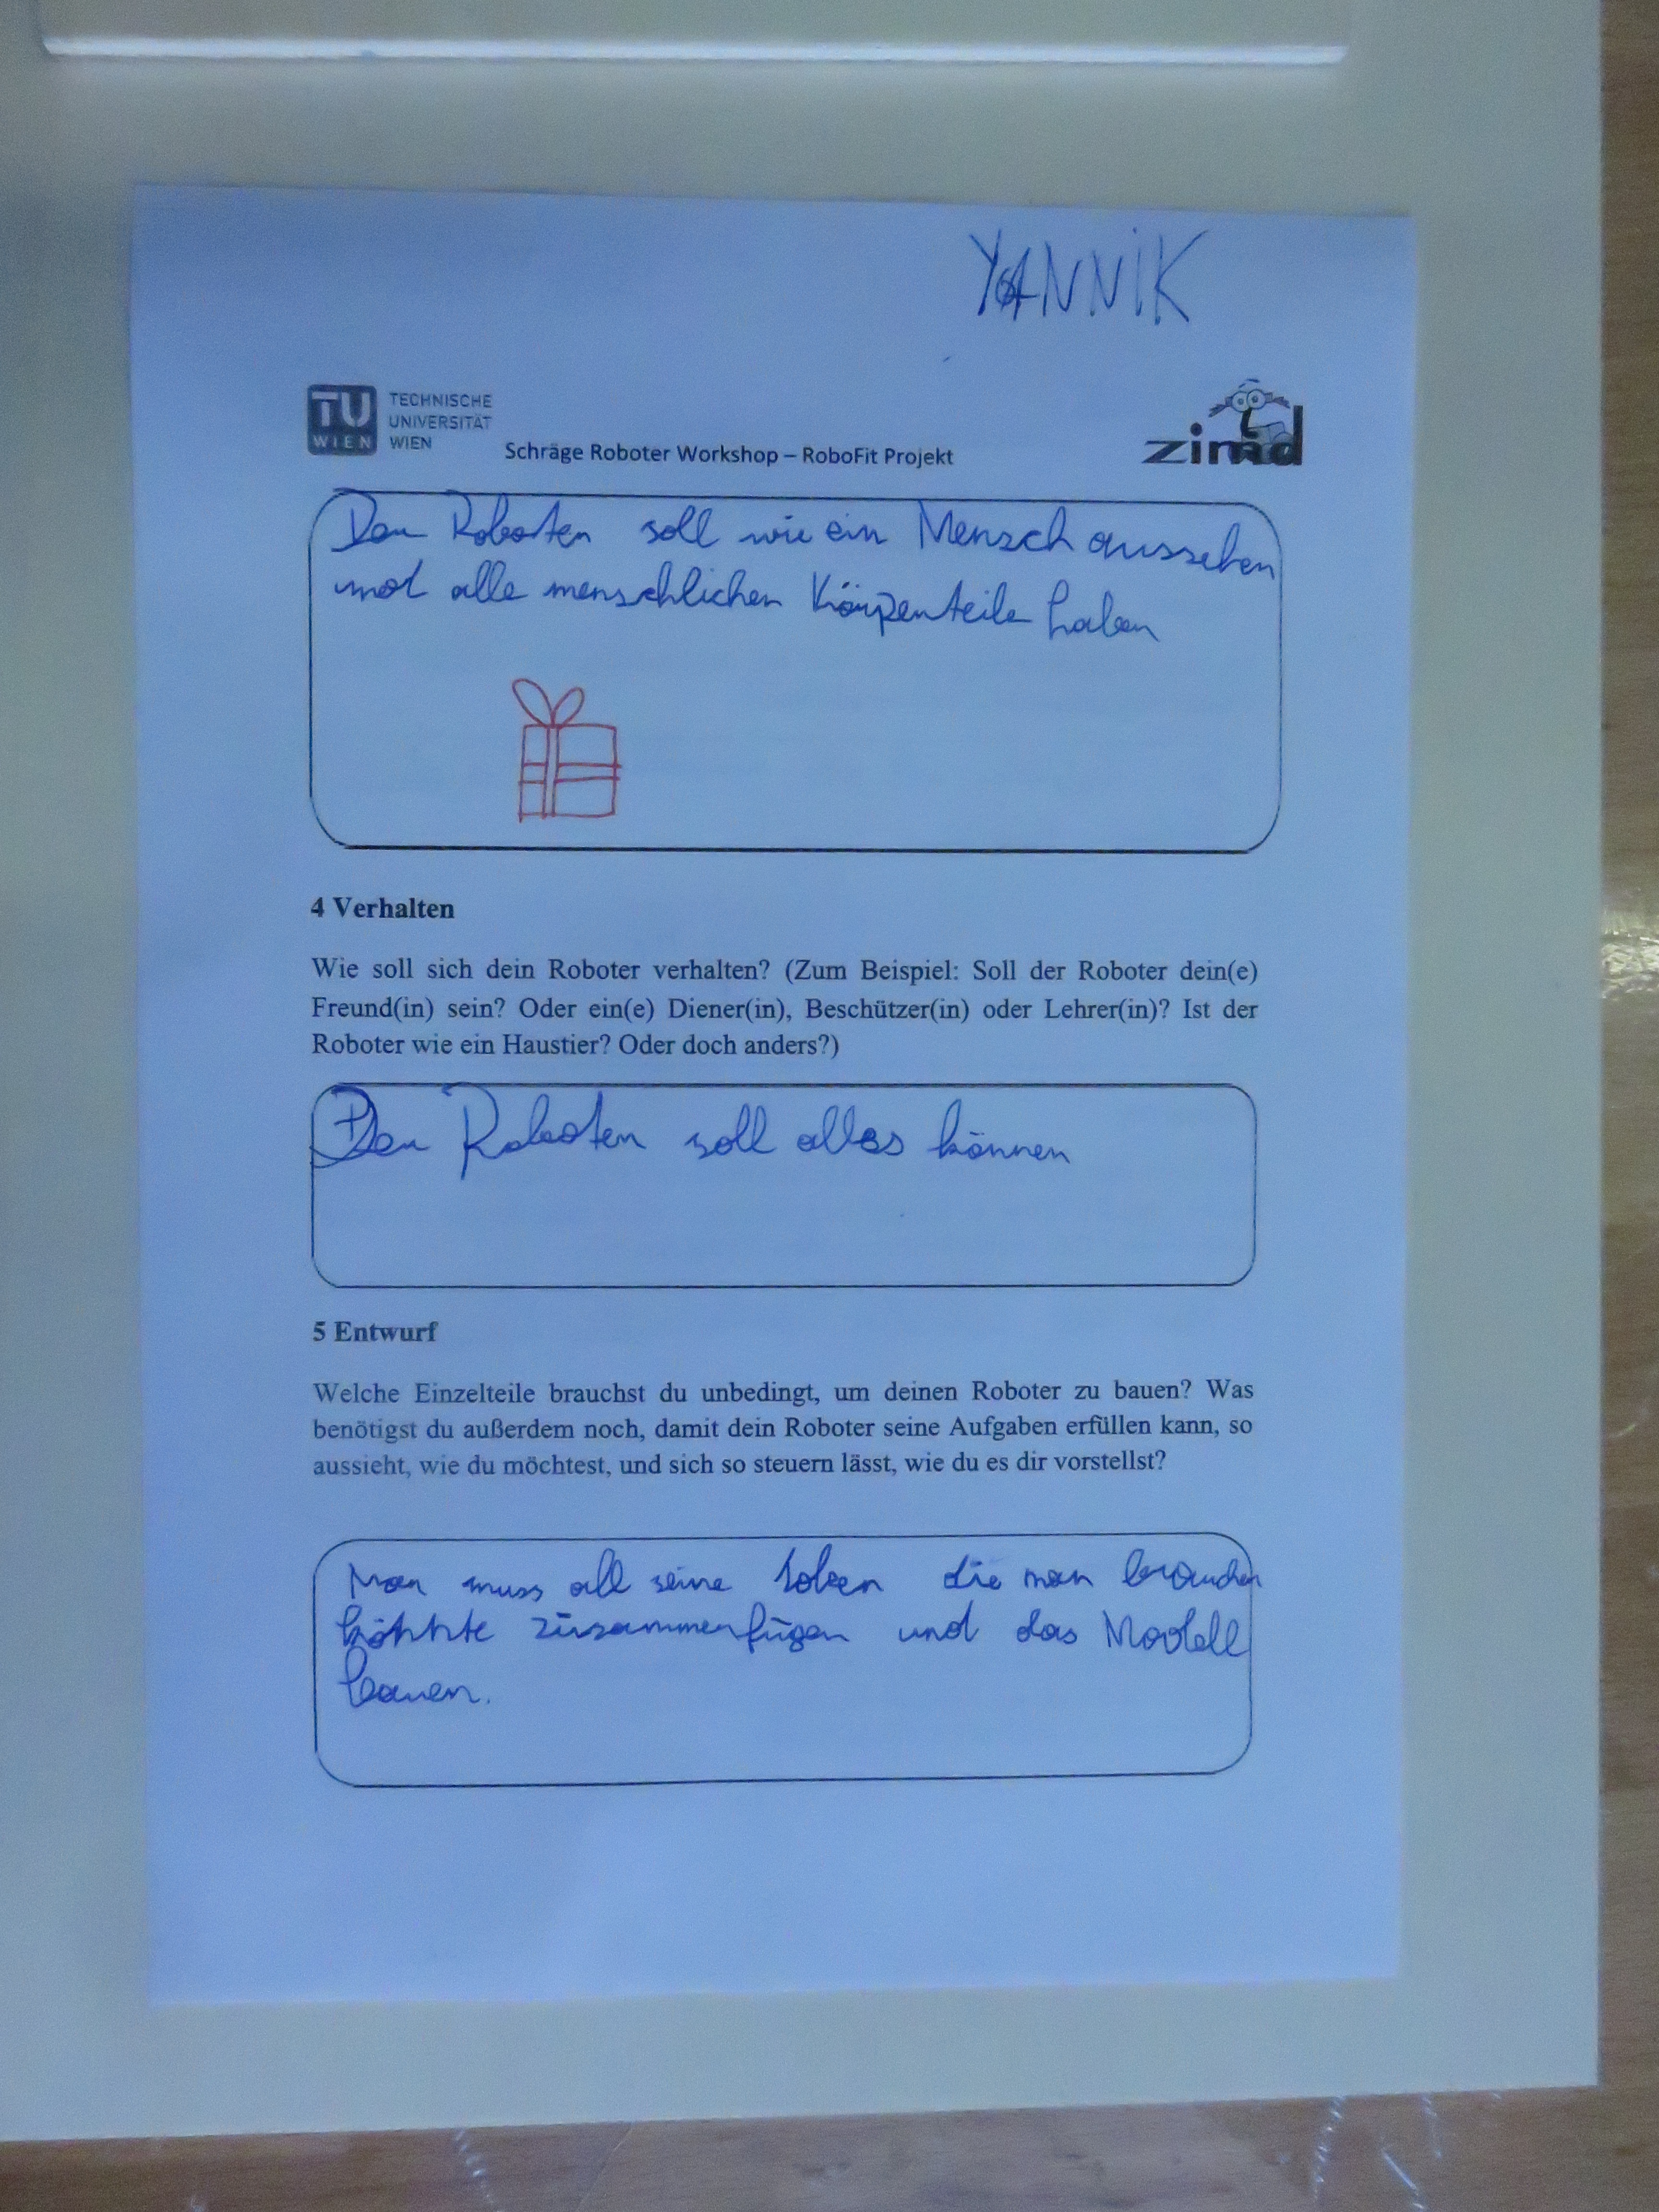 YANNIK
TU
WIEN
TECHNISCHE
UNIVERSITÄT
WIEN
Schräge Roboter Workshop – RoboFit Projekt
zimd
Der Roboter soll wie ein Mensch aussehen
und alle menschlichen Körperteile haben
4 Verhalten
Wie soll sich dein Roboter verhalten? (Zum Beispiel: Soll der Roboter dein(e)
Freund(in) sein? Oder ein(e) Diener(in), Beschützer(in) oder Lehrer(in)? Ist der
Roboter wie ein Haustier? Oder doch anders?)
Der Roboter soll alles können
5 Entwurf
Welche Einzelteile brauchst du unbedingt, um deinen Roboter zu bauen? Was
benötigst du außerdem noch, damit dein Roboter seine Aufgaben erfüllen kann, so
aussieht, wie du möchtest, und sich so steuern lässt, wie du es dir vorstellst?
Man muss all seine die man brauchen
könnte zusammenfügen und das Modell
bauen.